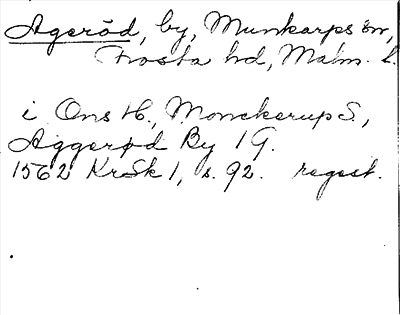 Ageröd, by, Munkarps sn,
Frosta hd, Malm. L.
i Ons H., Monckerup S.,
Aggerød By 1 G.
1562 KrSk 1, s. 92. regest.